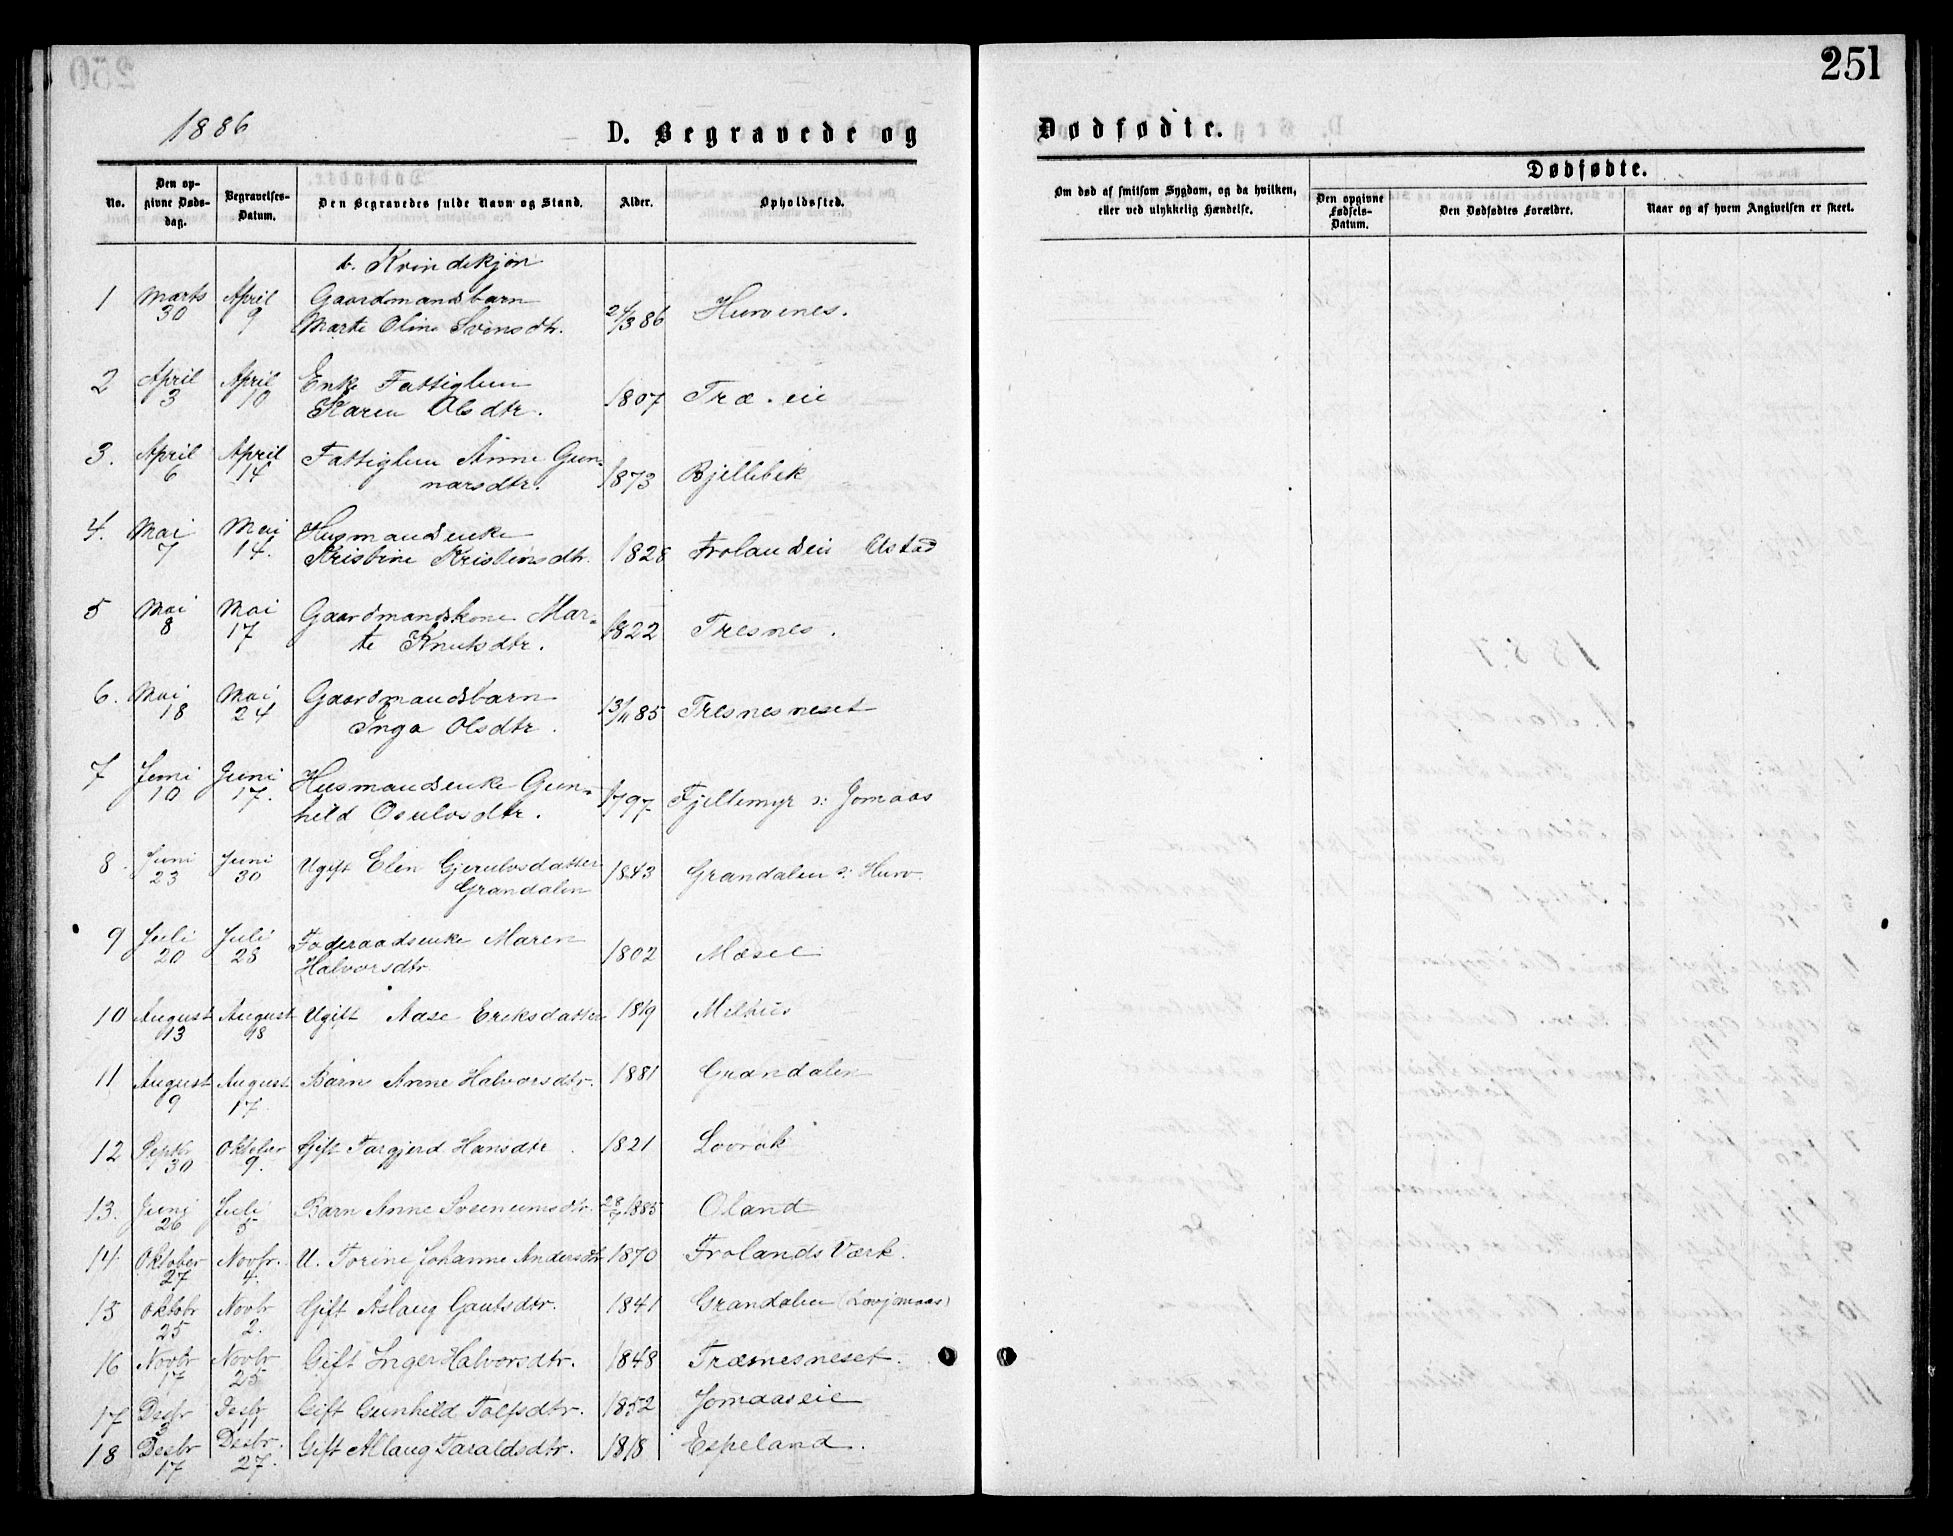 251
1886
D. Begravede og
Dødfødte.
No.
Den op-
givne Døds-
dag.
Begravelses-
Datum.
Den Begravedes fulde Navn og Stand.
Alder.
Opholdssted.
Om død af smitsom Sygdom, og da hvilken,
eller ved ulykkelig Hændelse.
Dødfødte.
Den opgivne
Fødsels-
Datum.
Den Dødfødtes Forældre.
Naar og af hvem Angivelsen er skeet.
b. Kvindekjøn
1 Marts 30 April 9 Gaardmandsbarn
Marte Oline Svensdtr. 24/3 86 Hurvenes.
2 April 3 April 10 Enke Fattiglem
Karen Olsdtr. 1807 Træ. eie
3. April 6 April 14 Fattiglem Anne Gun-
narsdtr. 1873 Bjellebek
4. Mai 7 Mai 14. Husmandsenke
Kristine Kristensdtr. 1828 Frolandseie Ustad
5 Mai 8 Mai 17 Gaardmandskone Mar-
te Knutsdtr. 1822 Tresnes.
6. Mai 18 Mai 24 Gaardmandsbarn
Inga Olsdtr. 13/11 85 Tresnesneset
7 Juni 10 Juni 17. Husmandsenke Gun-
hild Osulvsdtr. 1797 Fjellemyr v: Jomaas
8. Juni 23 Juni 30 Ugift Elen Gjerulvsdatter
Grandalen 1843 Grandalen v: Hurv.
9 Juli 20 Juli 28 Føderaadsenke Maren
Halvorsdtr 1802 Mæsel
10 August 13 August 18 Ugift Aase Ereksdatter 1819 Melhus
11 August 9 August 17. Barn Anne Halvorsdtr. 1881 Grandalen
12 Septbr 30 Oktober 9. Gift Targjerd Hansdtr 1821 Lovrak
13. Juni 26 Juli 5 Barn Anne Sveinumsdtr. 28/7 1885 Oland
14. Oktober 27 Novbr. 4. U. Torine Johanne Andersdtr 1870 Frolands Værk.
15 Oktobr 25 Novbr 2. Gift Aslaug Gautsdtr. 1841 Grandalen (Lavjomaas)
16 Novbr 17 Novbr 25 Gift Inger Halvorsdtr. 1848 Træsnesneset.
17 Desbr 3 Desbr 11 Gift Gunhild Tolfsdtr. 1852 Jomaaseie
18 Desbr 17 Desbr. 27. Gift Aslaug Taraldsdtr. 1818 Espeland.